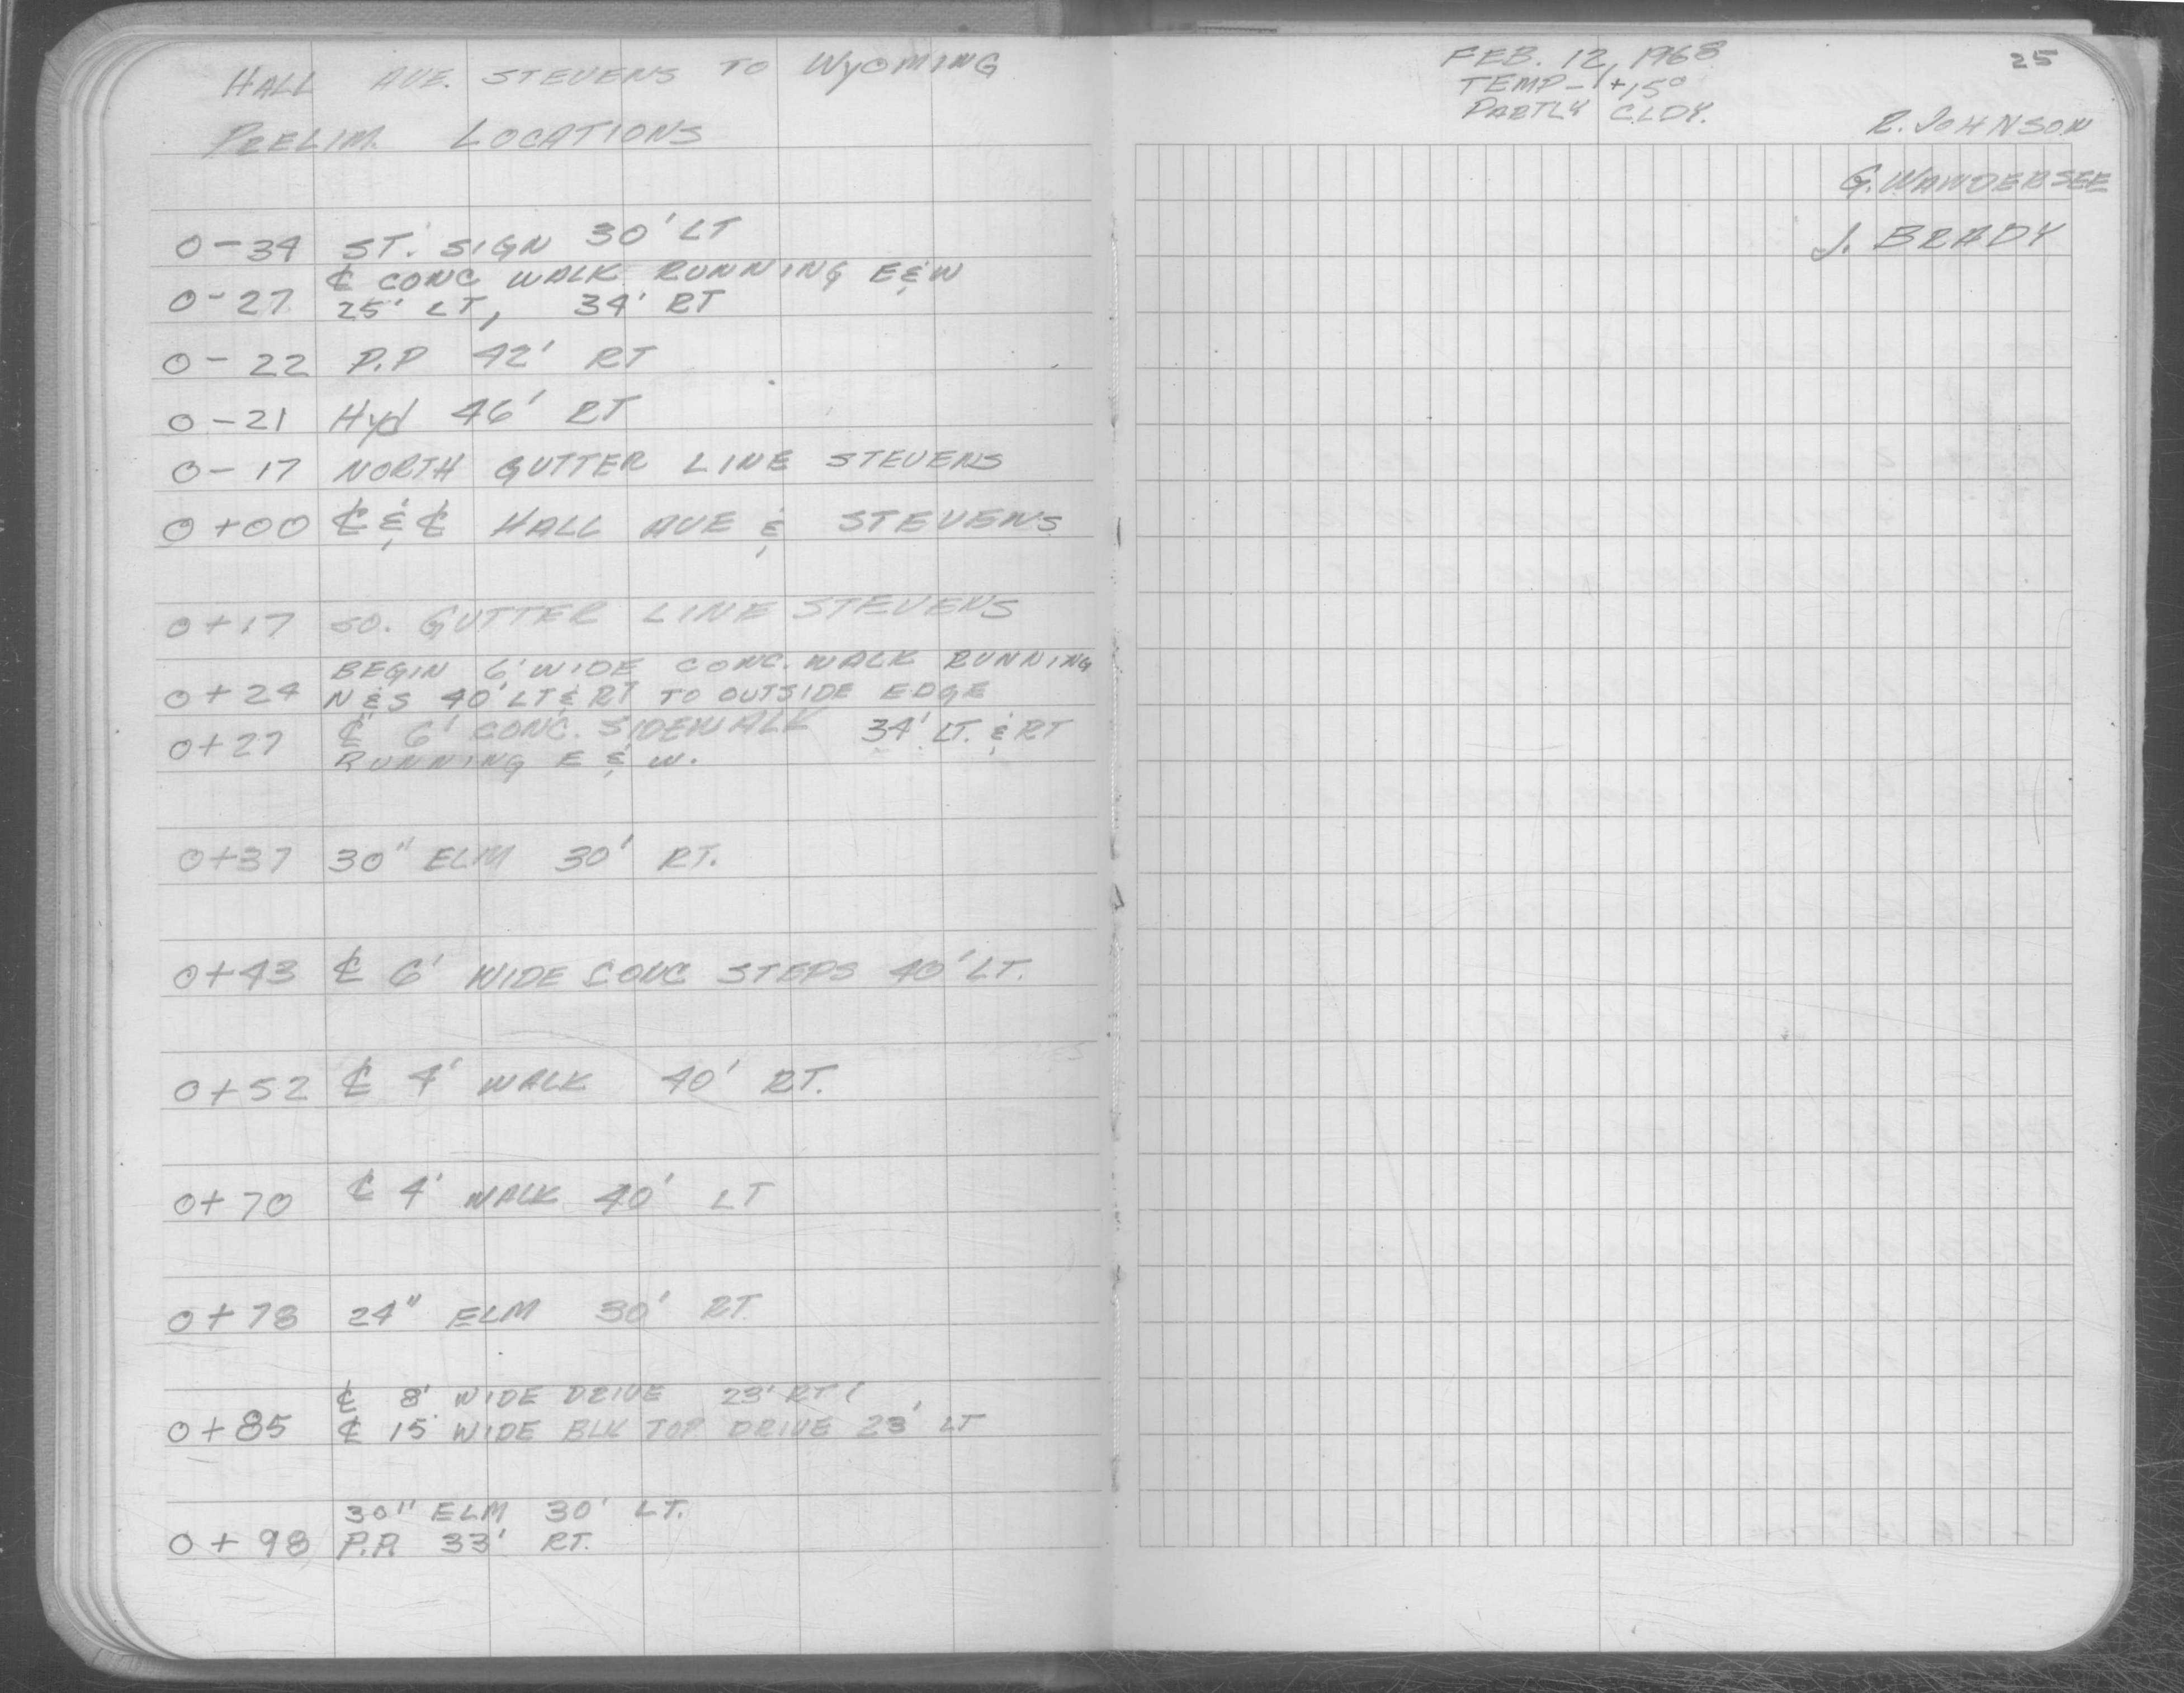 HALL AVE. STEVENS TO WYOMING
PRELIM. LOCATIONS
0-34 ST. SIGN 30' LT
℄ CONC WALK RUNNING E&W
0-27 25' LT, 34' RT
0-22 P.P 42' RT
0-21 Hyd 46' RT
0-17 NORTH GUTTER LINE STEVENS
0+00 ℄ & ℄ HALL AVE & STEVENS
0+17 SO. GUTTER LINE STEVENS
BEGIN 6' WIDE CONC. WALK RUNNING
0+24 N&S 40' LT & RT TO OUTSIDE EDGE
0+27 ℄ 6' CONC. SIDEWALK 34' LT. & RT
RUNNING E & W.
0+37 30" ELM 30' RT.
0+43 ℄ 6' WIDE CONC STEPS 40' LT.
0+52 ℄ 4' WALK 40' RT.
0+70 ℄ 4' WALK 40' LT
0+78 24" ELM 30' RT.
℄ 8' WIDE DRIVE 23' RT
0+85 ℄ 15' WIDE BLK TOP DRIVE 23' LT
30" ELM 30' LT.
0+98 P.P. 33' RT.
FEB. 12, 1968
TEMP - +15°
PARTLY CLDY.
25
R. JOHNSON
G. WANDERSEE
J. BRADY